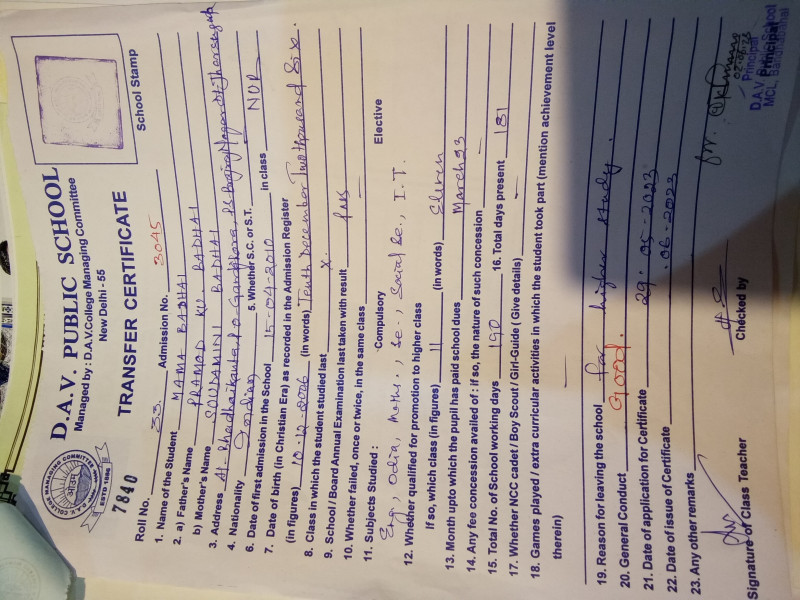 D.A.V. PUBLIC SCHOOL
Managed by : D.A.V.College Managing Committee
New Delhi - 55
TRANSFER CERTIFICATE
School Stamp
7840
Roll No. 33. Admission No. 3045
1. Name of the Student MAMA BADHAI
2. a) Father's Name PRAMOD KU. BADHAI
b) Mother's Name SOUDAMINI BADHAI
3. Address At-
4. Nationality Indian 5. Whether S.C. or S.T. NOR
6. Date of first admission in the School 15-04-2010 in class
7. Date of birth (in Christian Era) as recorded in the Admission Register
(in figures) 10-12-2006 (in words) Tenth December Two thousand Six.
8. Class in which the student studied last X.
9. School / Board Annual Examination last taken with result Pass
10. Whether failed, once or twice, in the same class —
11. Subjects Studied : Compulsory Elective
Eng, Odia, Maths., Sc., Social Sc., I.T.
12. Whether qualified for promotion to higher class
If so, which class (in figures) 11 (in words) Eleven
13. Month upto which the pupil has paid school dues March 23
14. Any fee concession availed of : if so, the nature of such concession —
15. Total No. of School working days 190 16. Total days present 181
17. Whether NCC cadet / Boy Scout / Girl-Guide ( Give details) —
18. Games played / extra curricular activities in which the student took part (mention achievement level
therein) —
19. Reason for leaving the school for higher study.
20. General Conduct Good.
21. Date of application for Certificate 29-05-2023
22. Date of issue of Certificate .06-2023
23. Any other remarks
Signature of Class Teacher Checked by for.
Principal
D.A.V. Public School
MCL,